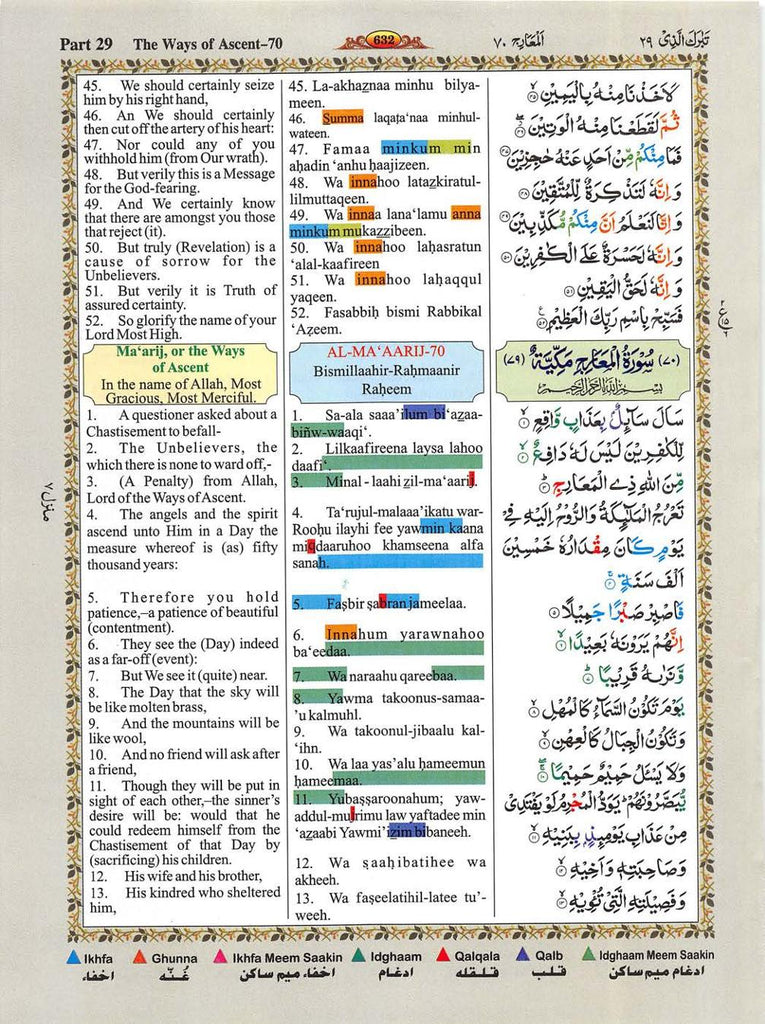 Part 29 The Ways of Ascent–70
632
اَلْمَعَارِج ٧٠
تَبٰرَكَ الَّذِىْ ٢٩
45. We should certainly seize
him by his right hand,
46. An We should certainly
then cut off the artery of his heart:
47. Nor could any of you
withhold him (from Our wrath).
48. But verily this is a Message
for the God-fearing.
49. And We certainly know
that there are amongst you those
that reject (it).
50. But truly (Revelation) is a
cause of sorrow for the
Unbelievers.
51. But verily it is Truth of
assured certainty.
52. So glorify the name of your
Lord Most High.
Ma‘arij, or the Ways
of Ascent
In the name of Allah, Most
Gracious, Most Merciful.
1. A questioner asked about a
Chastisement to befall-
2. The Unbelievers, the
which there is none to ward off,-
3. (A Penalty) from Allah,
Lord of the Ways of Ascent.
4. The angels and the spirit
ascend unto Him in a Day the
measure whereof is (as) fifty
thousand years:
5. Therefore you hold
patience,–a patience of beautiful
(contentment).
6. They see the (Day) indeed
as a far-off (event):
7. But We see it (quite) near.
8. The Day that the sky will
be like molten brass,
9. And the mountains will be
like wool,
10. And no friend will ask after
a friend,
11. Though they will be put in
sight of each other,–the sinner's
desire will be: would that he
could redeem himself from the
Chastisement of that Day by
(sacrificing) his children.
12. His wife and his brother,
13. His kindred who sheltered
him,
45. La-akhaznaa minhu bilya-
meen.
46. Summa laqaṭa‘naa minhul-
wateen.
47. Famaa minkum min
aḥadin ‘anhu ḥaajizeen.
48. Wa innahoo latazkiratul-
lilmuttaqeen.
49. Wa innaa lana‘lamu anna
minkum mukazzibeen.
50. Wa innahoo laḥasratun
‘alal-kaafireen
51. Wa innahoo laḥaqqul
yaqeen.
52. Fasabbiḥ bismi Rabbikal
‘Aẓeem.
AL-MA‘AARIJ-70
Bismillaahir-Raḥmaanir
Raḥeem
1. Sa-ala saaa'ilum bi‘azaa-
biñw-waaqi‘.
2. Lilkaafireena laysa lahoo
daafi‘.
3. Minal - laahi zil-ma‘aarij.
4. Ta‘rujul-malaaa'ikatu war-
Rooḥu ilayhi fee yawmin kaana
miqdaaruhoo khamseena alfa
sanah.
5. Faṣbir ṣabran jameelaa.
6. Innahum yarawnahoo
ba‘eedaa.
7. Wa naraahu qareebaa.
8. Yawma takoonus-samaa-
'u kalmuhl.
9. Wa takoonul-jibaalu kal-
‘ihn.
10. Wa laa yas'alu ḥameemun
ḥameemaa.
11. Yubaṣṣaroonahum; yaw-
addul-mujrimu law yaftadee min
‘azaabi Yawmi'izim bibaneeh.
12. Wa ṣaaḥibatihee wa
akheeh.
13. Wa faṣeelatihil-latee tu'-
weeh.
لَاَخَذْنَا مِنْهُ بِالْيَمِيْنِ ۙ﴿٤٥﴾
ثُمَّ لَقَطَعْنَا مِنْهُ الْوَتِيْنَ ۖ﴿٤٦﴾
فَمَا مِنْكُمْ مِّنْ اَحَدٍ عَنْهُ حٰجِزِيْنَ ﴿٤٧﴾
وَ اِنَّهٗ لَتَذْكِرَةٌ لِّلْمُتَّقِيْنَ ﴿٤٨﴾
وَ اِنَّا لَنَعْلَمُ اَنَّ مِنْكُمْ مُّكَذِّبِيْنَ ﴿٤٩﴾
وَ اِنَّهٗ لَحَسْرَةٌ عَلَى الْكٰفِرِيْنَ ﴿٥٠﴾
وَ اِنَّهٗ لَحَقُّ الْيَقِيْنِ ﴿٥١﴾
فَسَبِّحْ بِاسْمِ رَبِّكَ الْعَظِيْمِ ﴿٥٢﴾
(٧٠) سُوْرَةُ الْمَعَارِجِ مَكِّيَّةٌ (٧٩)
بِسْمِ اللهِ الرَّحْمٰنِ الرَّحِيْمِ
سَاَلَ سَآئِلٌۢ بِعَذَابٍ وَّاقِعٍ ۙ﴿١﴾
لِّلْكٰفِرِيْنَ لَيْسَ لَهٗ دَافِعٌ ۙ﴿٢﴾
مِّنَ اللهِ ذِى الْمَعَارِجِ ؕ﴿٣﴾
تَعْرُجُ الْمَلٰٓئِكَةُ وَالرُّوْحُ اِلَيْهِ فِىْ
يَوْمٍ كَانَ مِقْدَارُهٗ خَمْسِيْنَ
اَلْفَ سَنَةٍ ۚ﴿٤﴾
فَاصْبِرْ صَبْرًا جَمِيْلًا ﴿٥﴾
اِنَّهُمْ يَرَوْنَهٗ بَعِيْدًا ۙ﴿٦﴾
وَّنَرٰىهُ قَرِيْبًا ؕ﴿٧﴾
يَوْمَ تَكُوْنُ السَّمَآءُ كَالْمُهْلِ ۙ﴿٨﴾
وَتَكُوْنُ الْجِبَالُ كَالْعِهْنِ ۙ﴿٩﴾
وَلَا يَسْـَٔلُ حَمِيْمٌ حَمِيْمًا ۚ﴿١٠﴾
يُّبَصَّرُوْنَهُمْ ؕ يَوَدُّ الْمُجْرِمُ لَوْ يَفْتَدِىْ
مِنْ عَذَابِ يَوْمِئِذٍۢ بِبَنِيْهِ ۙ﴿١١﴾
وَصَاحِبَتِهٖ وَاَخِيْهِ ۙ﴿١٢﴾
وَفَصِيْلَتِهِ الَّتِىْ تُئْوِيْهِ ۙ﴿١٣﴾
منزل ٧
Ikhfa Ghunna Ikhfa Meem Saakin Idghaam Qalqala Qalb Idghaam Meem Saakin
اخفاء غُنّه اخفاء میم ساکن ادغام قلقله قلب ادغام میم ساکن